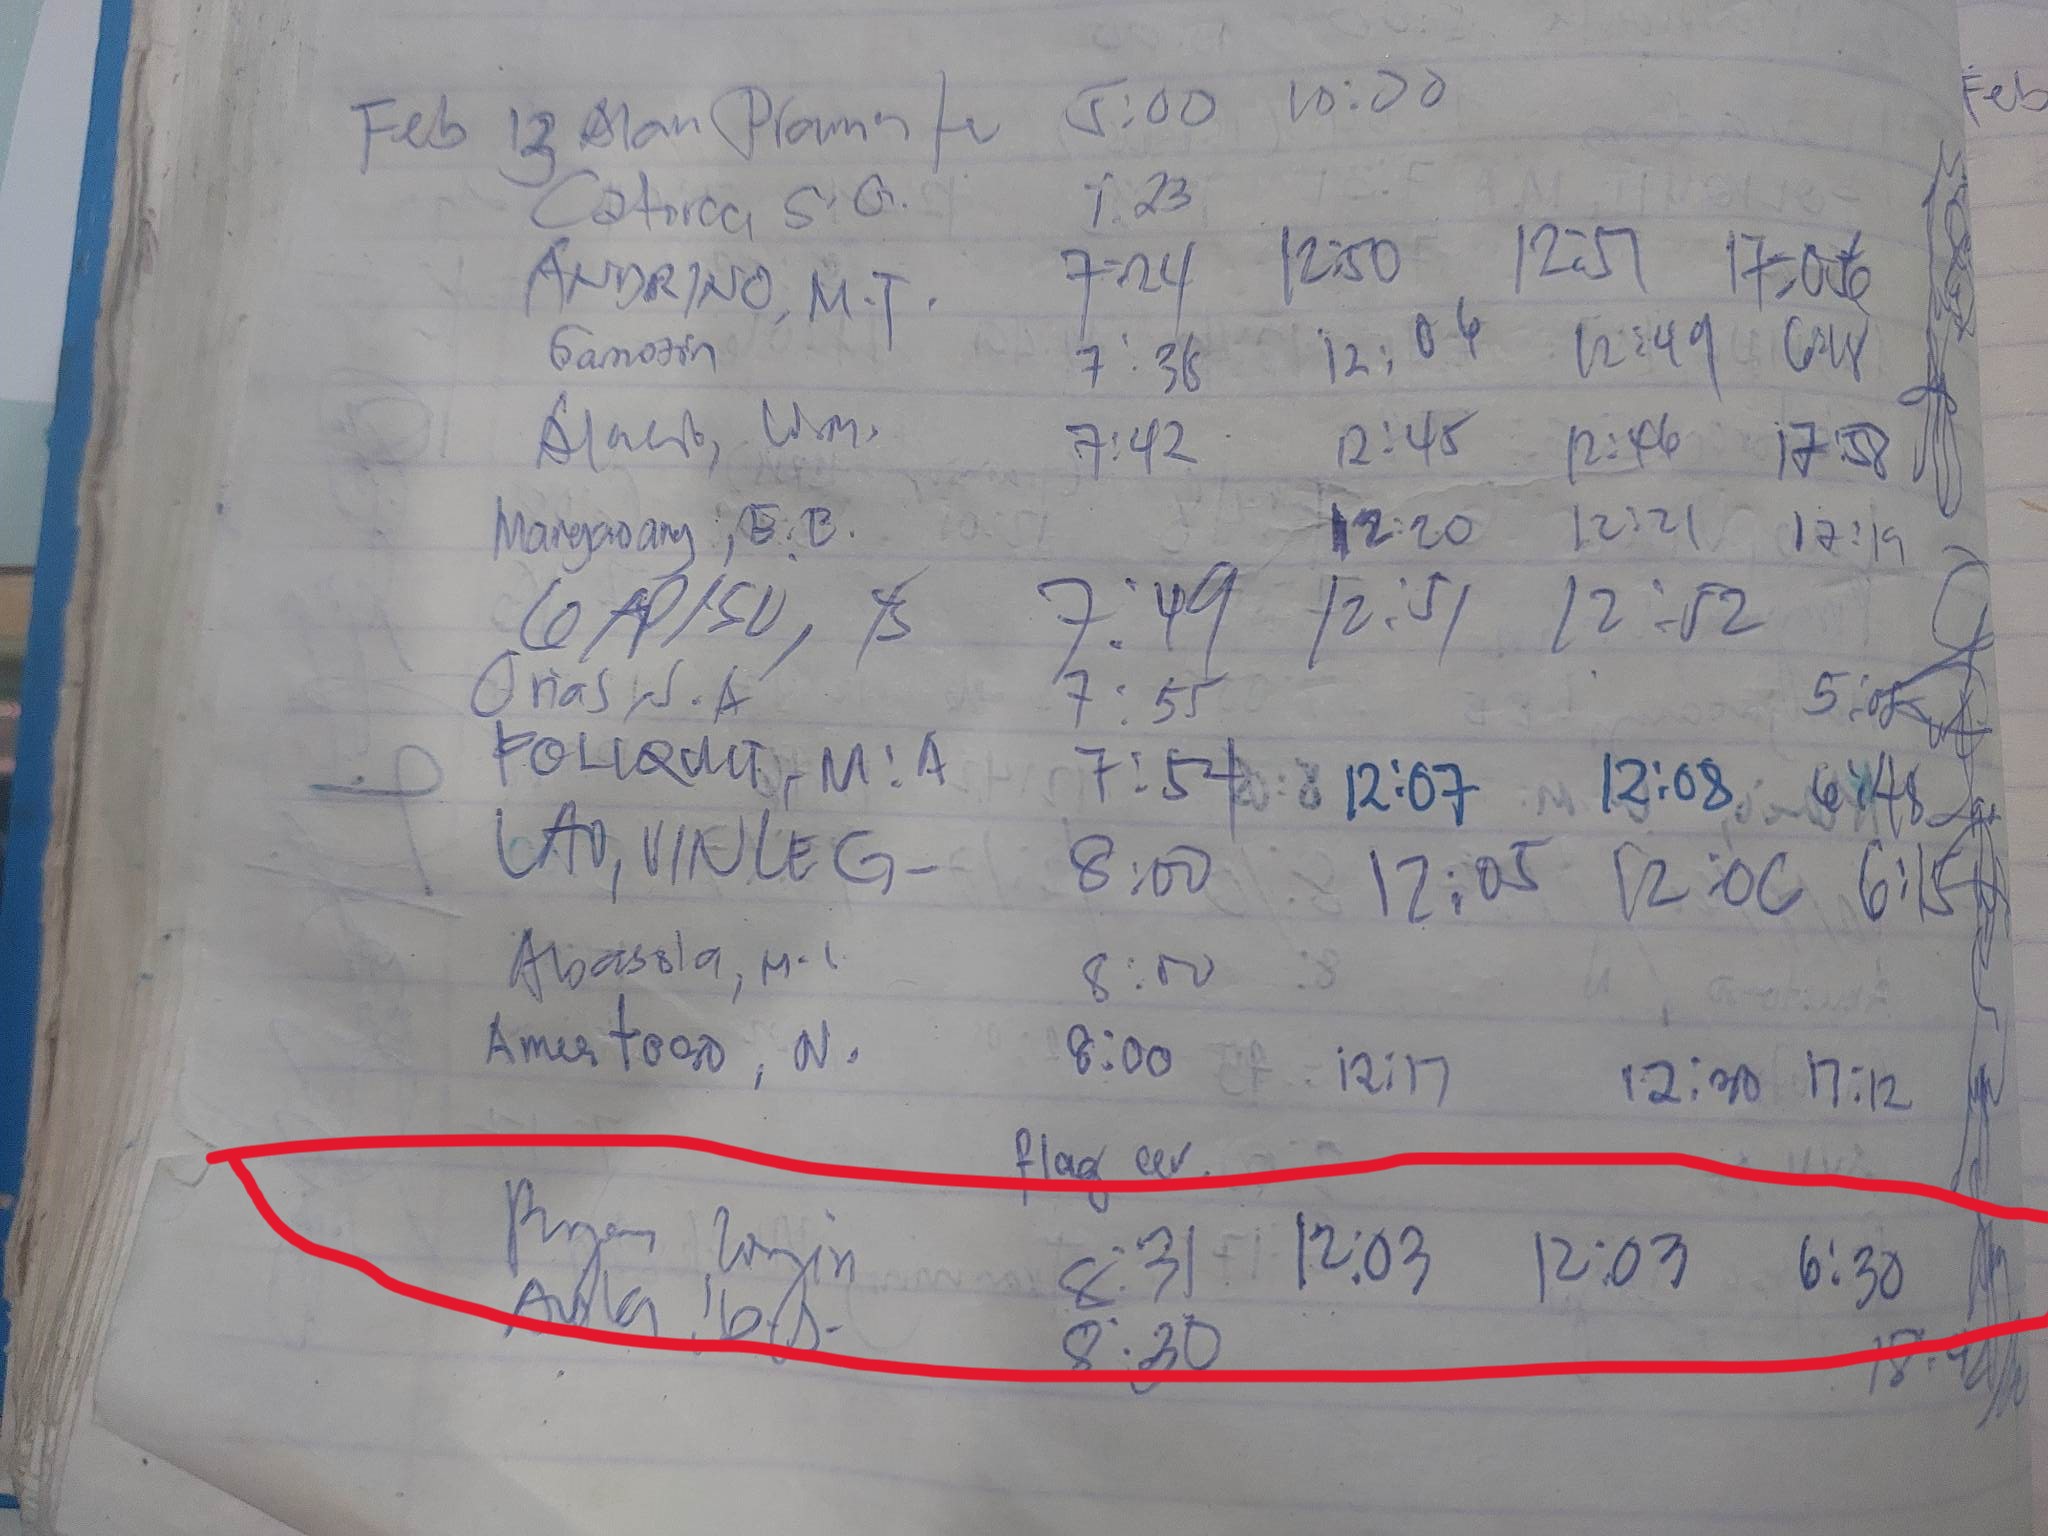 Feb 13 Alan 5:00 10:00
Catorca S.G. 7:23
ANDRINO, M.T. 7:24 12:50 12:51 17:06
7:36 12:04 12:49
7:42 12:45 12:46 17:58
Mangaoang, E.B. 12:20 12:21 17:19
GAPISU, 7:49 12:51 12:52
Orias, N.A 7:55 5:05
FOLIQUIT, M.A 7:54 12:07 12:08 6:48
LAO, VINLE G- 8:00 12:05 12:06 6:15
Abassla, M.L. 8:00
N. 8:00 12:17 12:30 17:12
flag cer.
8:31 12:03 12:03 6:30
8:30
Feb